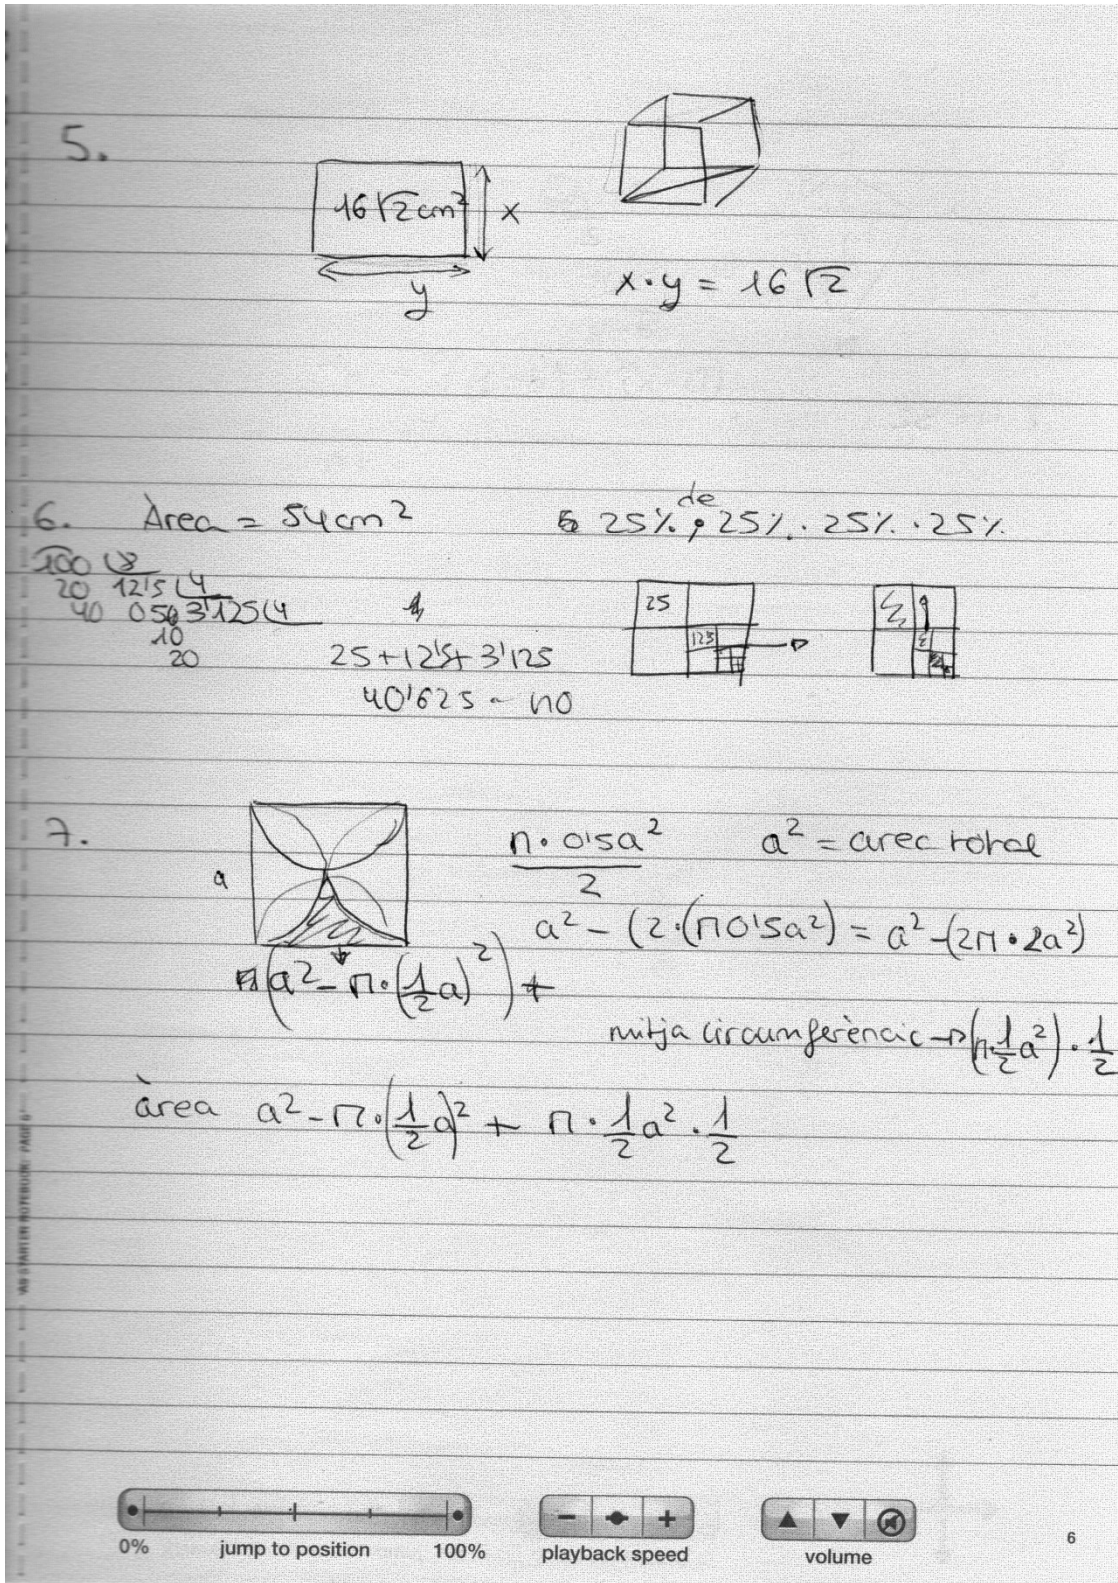 5.
16√2cm² x
y
x·y = 16√2
6. Àrea = 54cm² 25% de 25%. 25% . 25%
100 8
20 12'5 4
40 050 3'125 4
10
20
25+12'5+3'125
40'625 - no
25
125
7.
a
π·0'5a² / 2
a² = area total
a² - (2·(π0'5a²) = a² - (2π·2a²)
(a² - π·(1/2 a)²) +
mitja circumferència → (π·1/2 a²)·1/2
àrea a² - π·(1/2 a)² + π·1/2 a²·1/2
AG STARTER NOTEBOOK PAGE 6
0% jump to position 100%
playback speed
volume
6